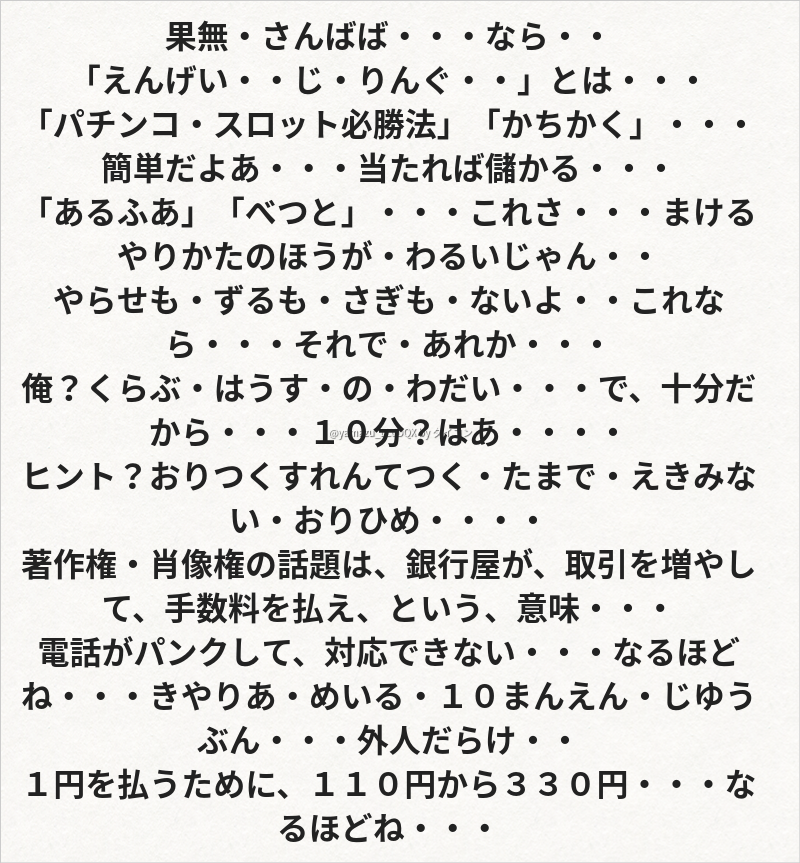 果無・さんばば・・・なら・・
「えんげい・・じ・りんぐ・・」とは・・・
「パチンコ・スロット必勝法」「かちかく」・・・
簡単だよあ・・・当たれば儲かる・・・
「あるふあ」「べつと」・・・これさ・・・まける
やりかたのほうが・わるいじゃん・・
やらせも・ずるも・さぎも・ないよ・・これな
ら・・・それで・あれか・・・
俺？くらぶ・はうす・の・わだい・・・で、十分だ
から・・・１０分？はあ・・・・
ヒント？おりつくすれんてつく・たまで・えきみな
い・おりひめ・・・・
著作権・肖像権の話題は、銀行屋が、取引を増やし
て、手数料を払え、という、意味・・・
電話がパンクして、対応できない・・・なるほど
ね・・・きやりあ・めいる・１０まんえん・じゆう
ぶん・・・外人だらけ・・
１円を払うために、１１０円から３３０円・・・な
るほどね・・・